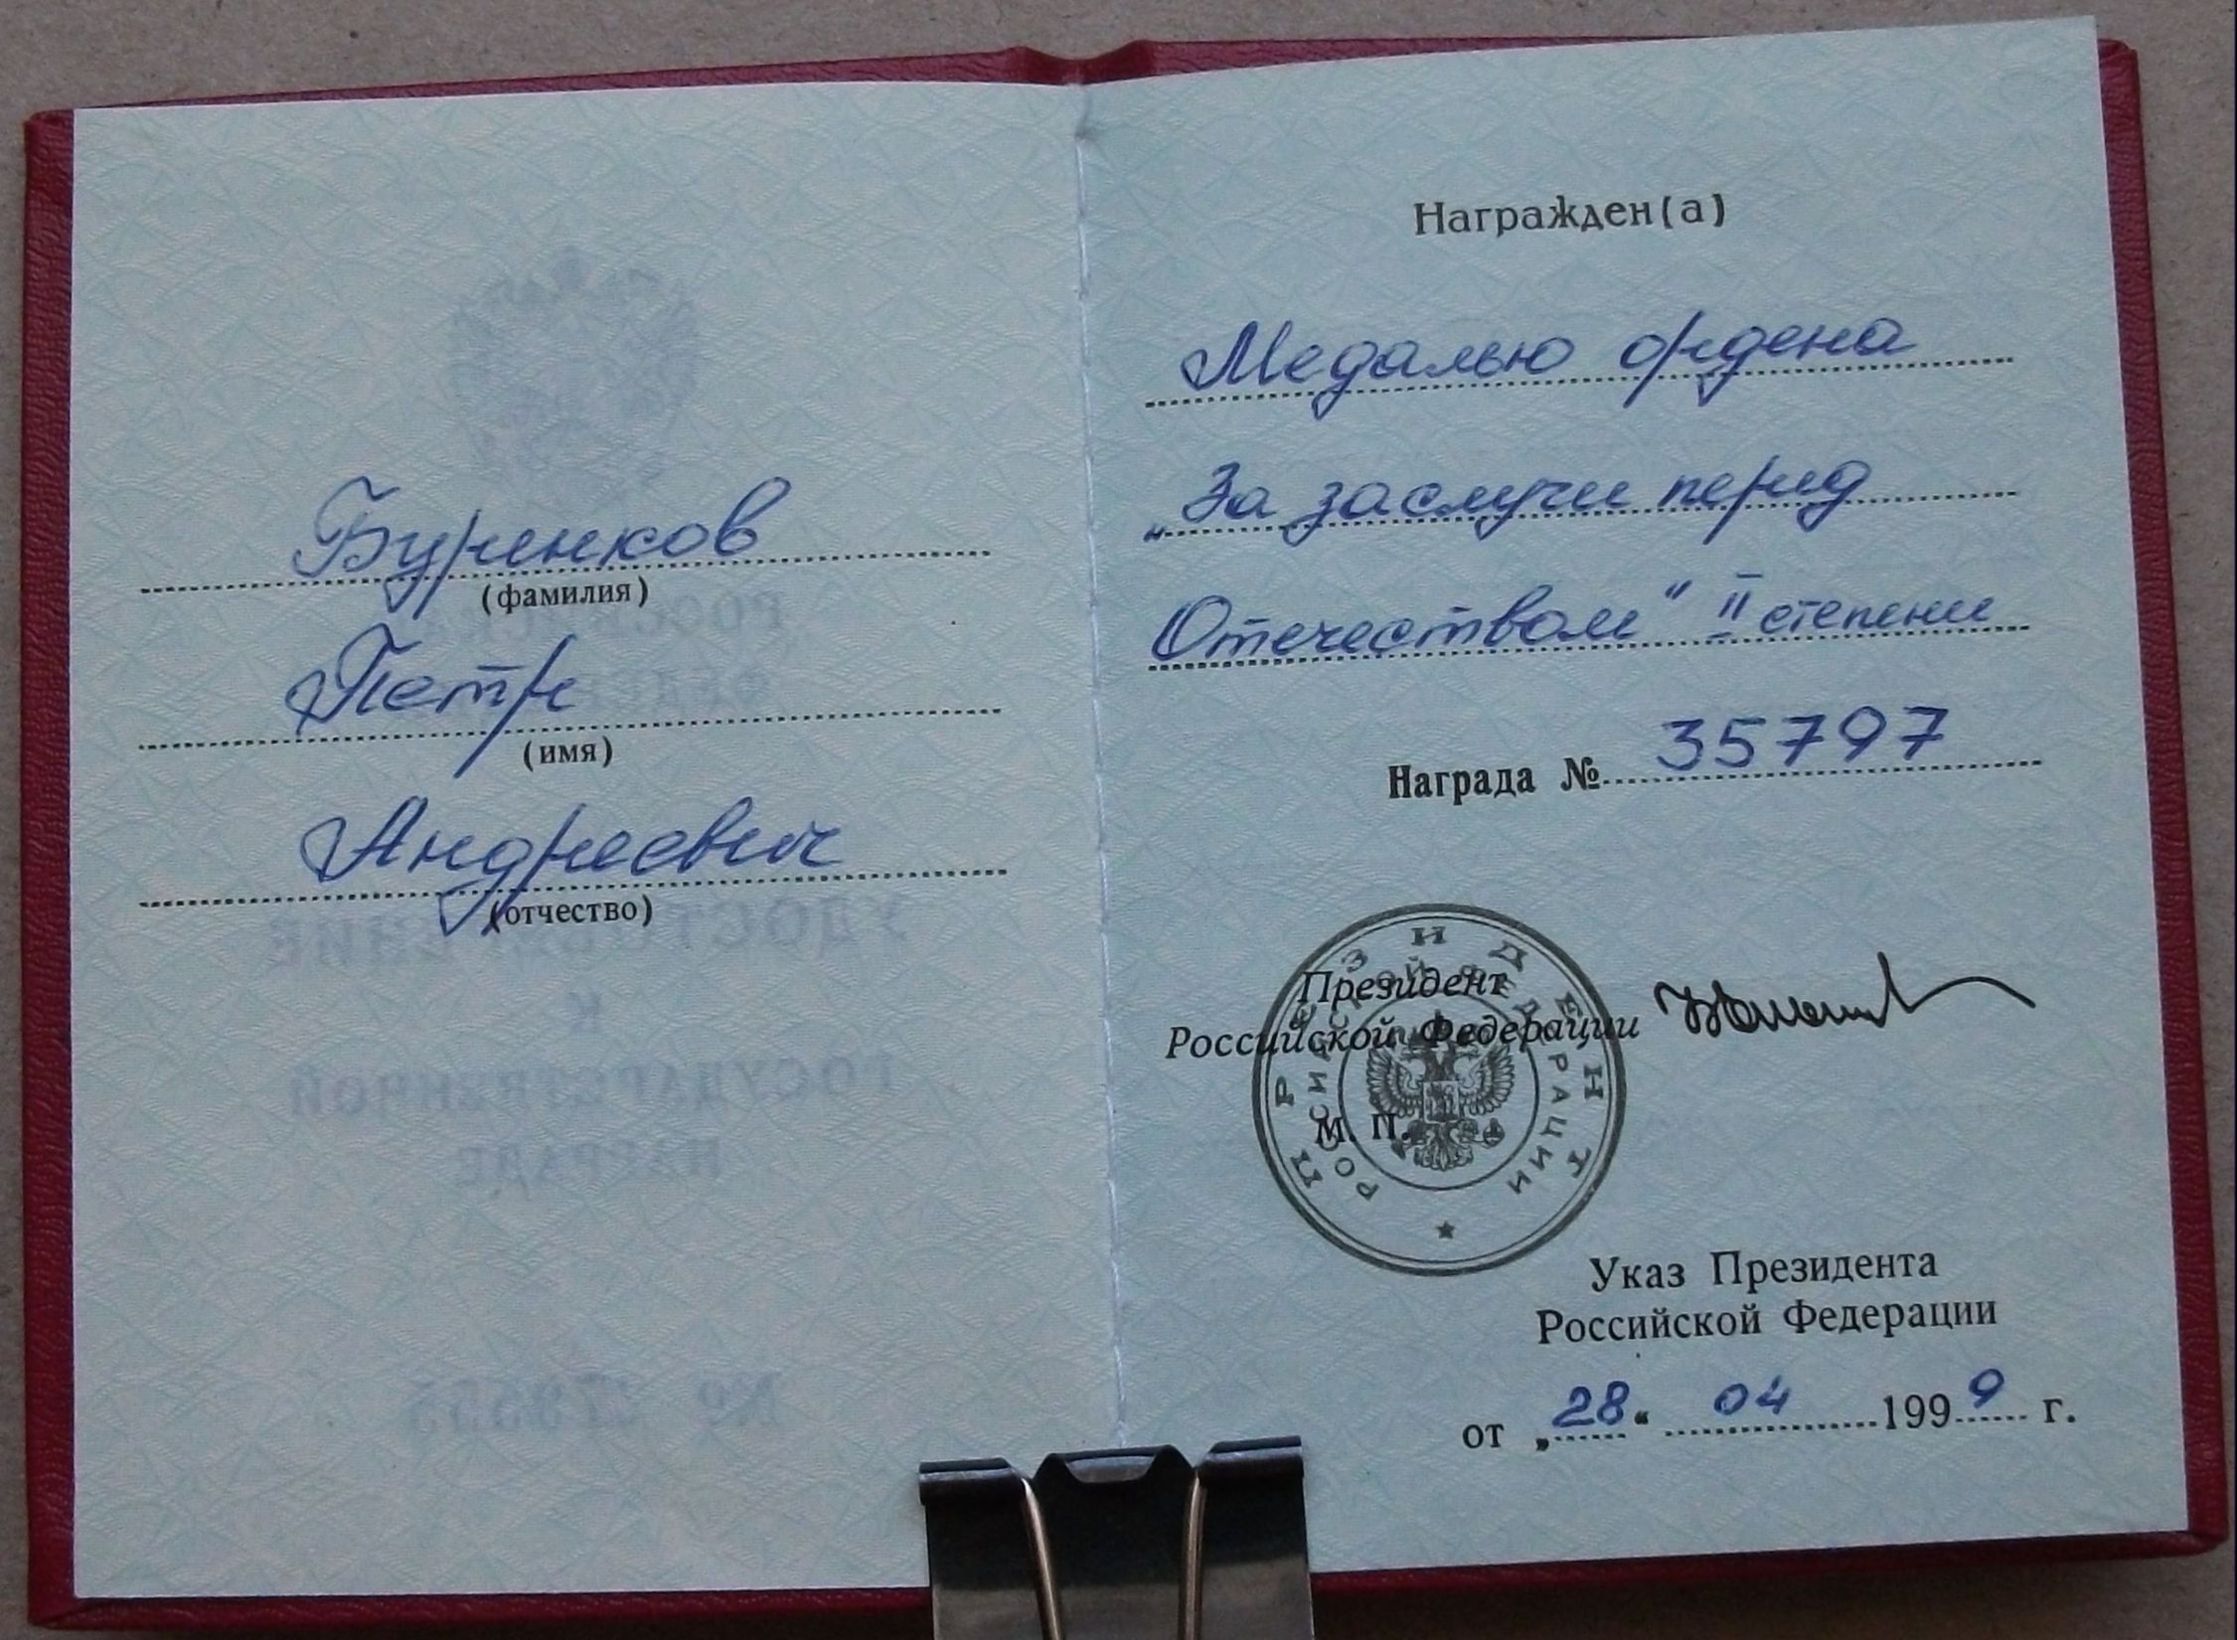 Буренков
(фамилия)
Петр
(имя)
Андреевич
(отчество)
Награжден(а)
Медалью ордена
„За заслуги перед
Отечеством" II степени
Награда № 35797
Президент
Российской Федерации
М. П.
ПРЕЗИДЕНТ
РОССИЙСКОЙ ФЕДЕРАЦИИ
Указ Президента
Российской Федерации
от „28“ 04 1999 г.